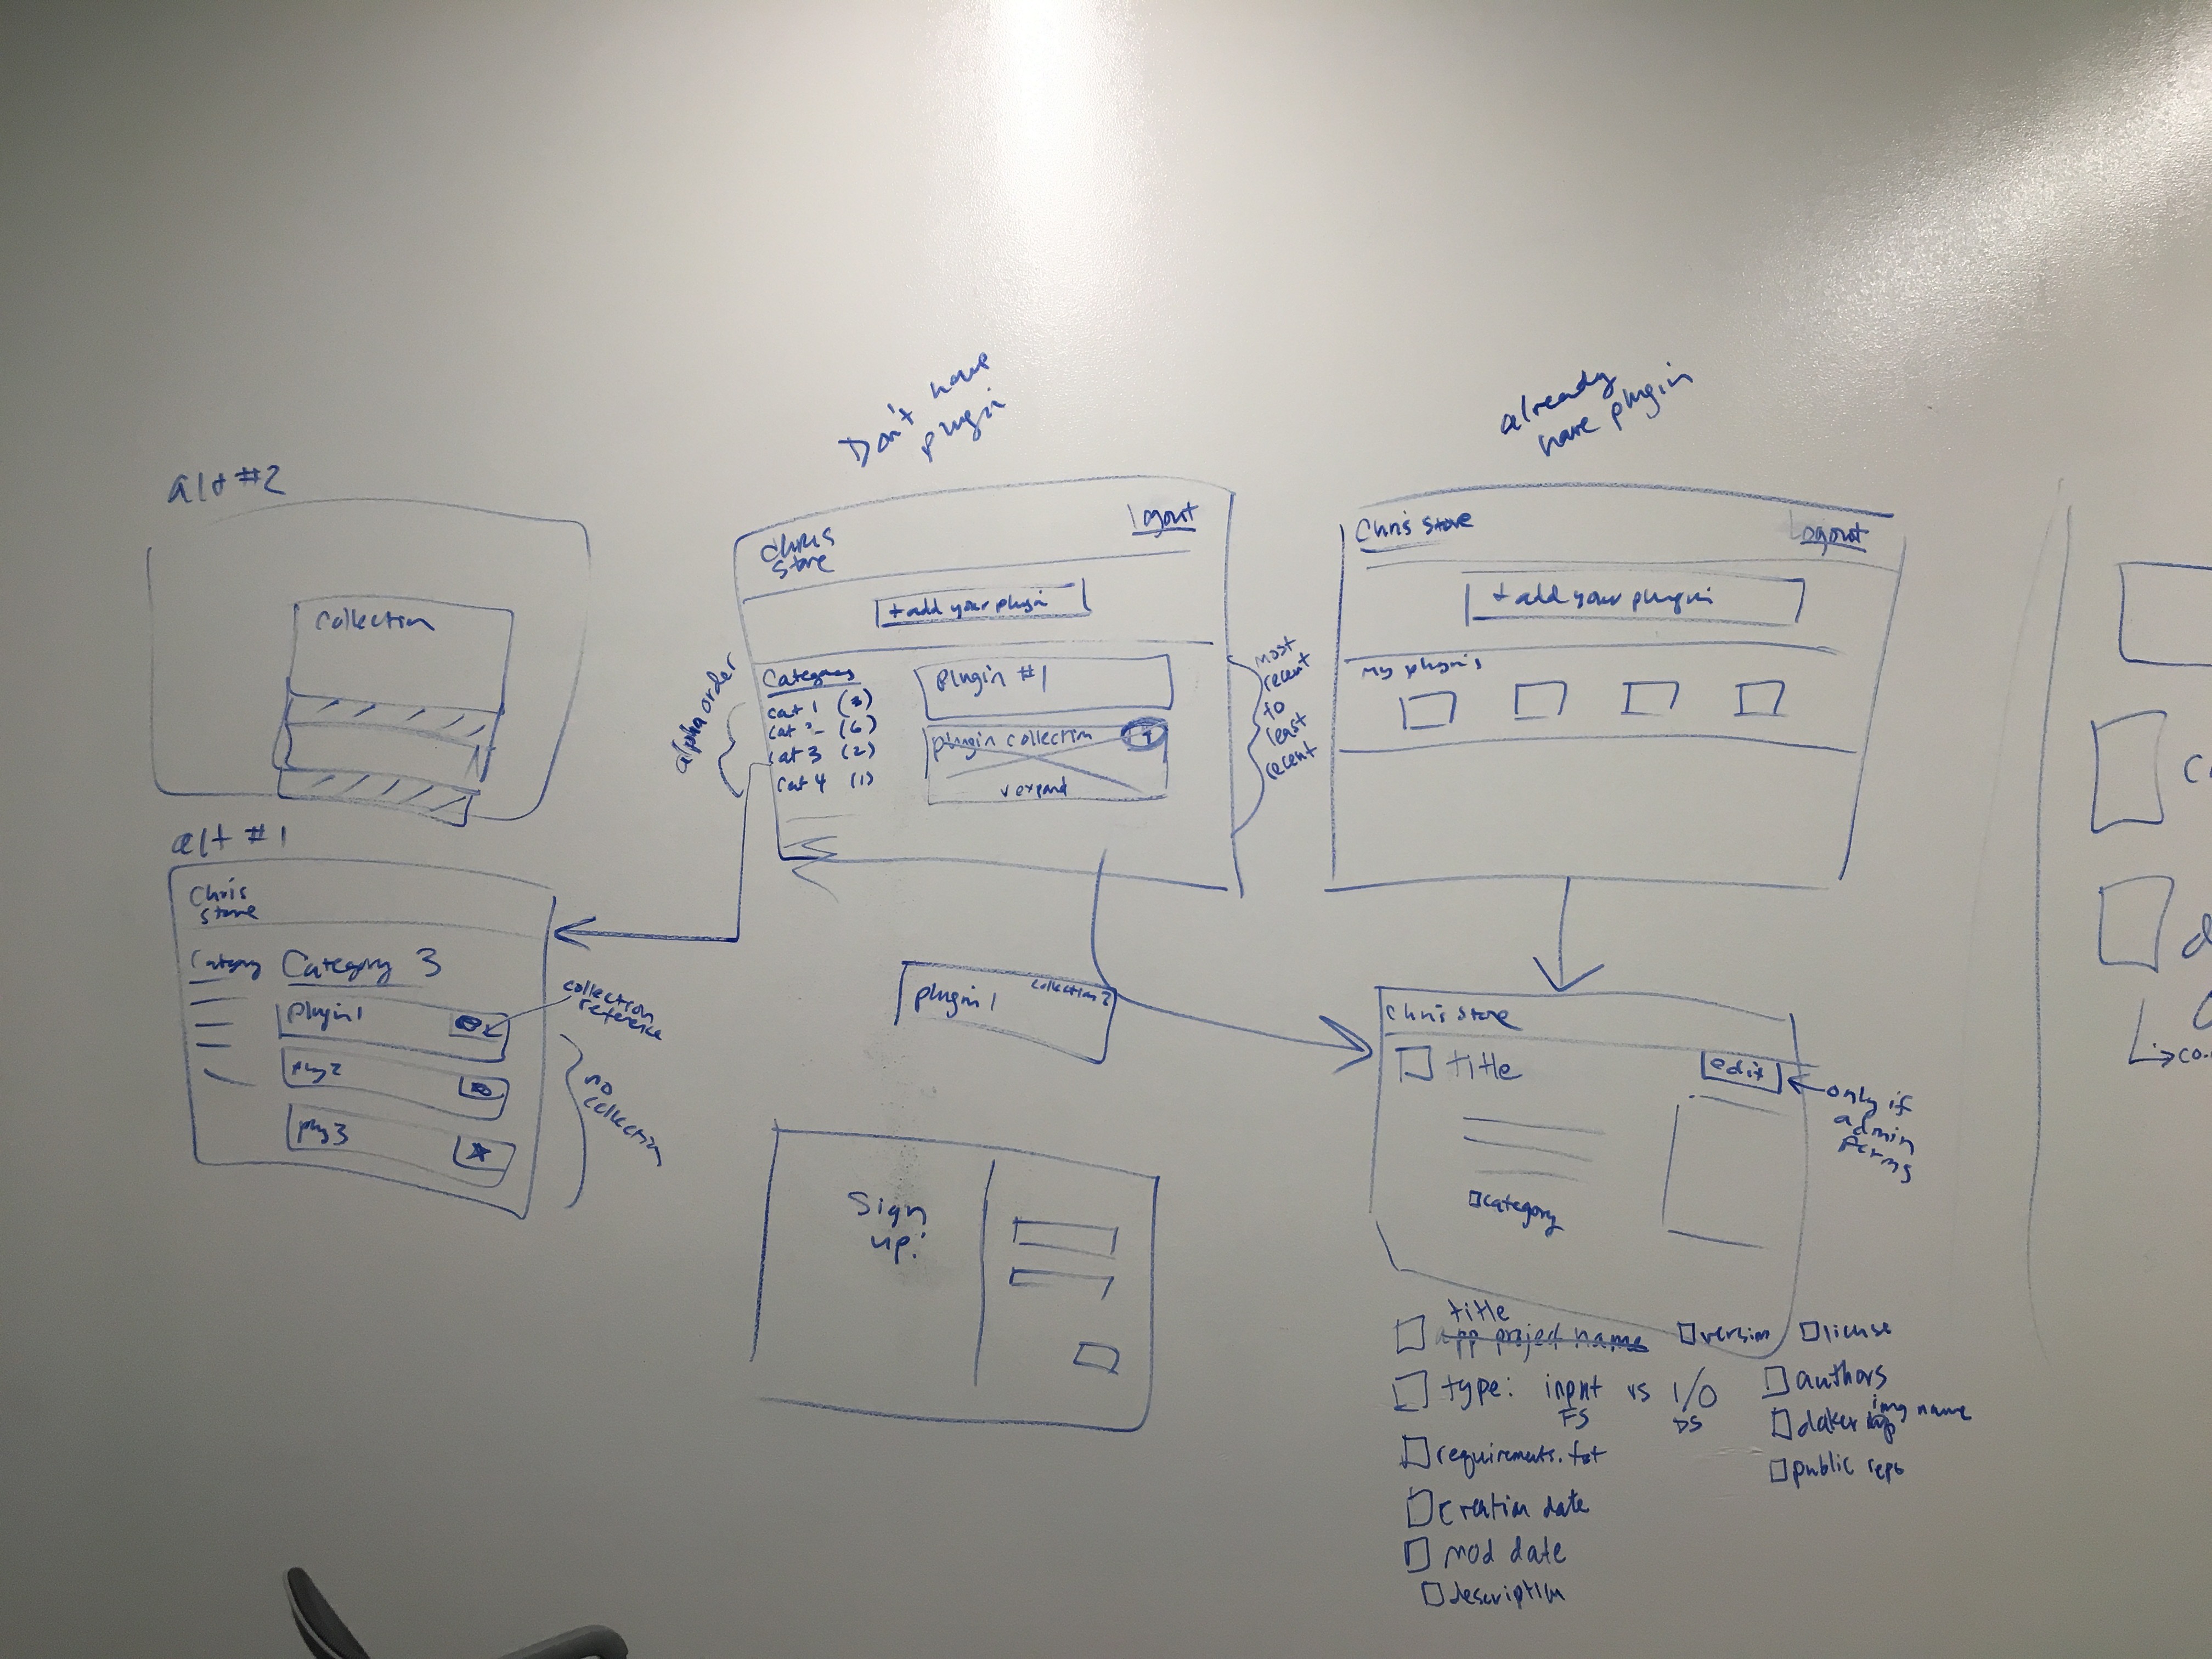 alt #2
Collection
alt #1
Chris
Store
Category
Category 3
plugin1
plug2
plug3
collection
reference
no
collection
Don't have
plugin
Chris
Store
logout
+ add your plugin
alpha order
Categories
cat 1 (3)
cat 2 (6)
cat 3 (2)
cat 4 (1)
plugin #1
plugin collection
v expand
most
recent
to
least
recent
plugin1
collection 2
Sign
up!
already
have plugin
Chris Store
Logout
+ add your plugin
my plugins
Chris Store
title
edit
only if
admin
perms
category
title
app project name
version
license
type: input vs I/O
FS
DS
authors
img name
docker
requirements.txt
public repo
creation date
mod date
description